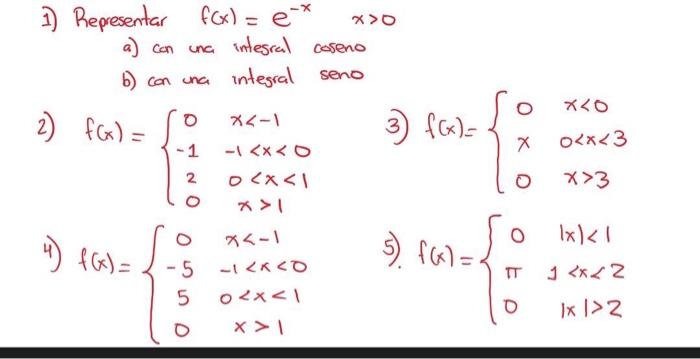 1) Representar f(x) = e^-x x>0
a) con una integral coseno
b) con una integral seno
2) f(x) = { 0 x<-1
-1 -1<x<0
2 0<x<1
0 x>1
3) f(x)= { 0 x<0
x 0<x<3
0 x>3
4) f(x)= { 0 x<-1
-5 -1<x<0
5 0<x<1
0 x>1
5). f(x)= { 0 |x|<1
π 1<x<2
0 |x|>2